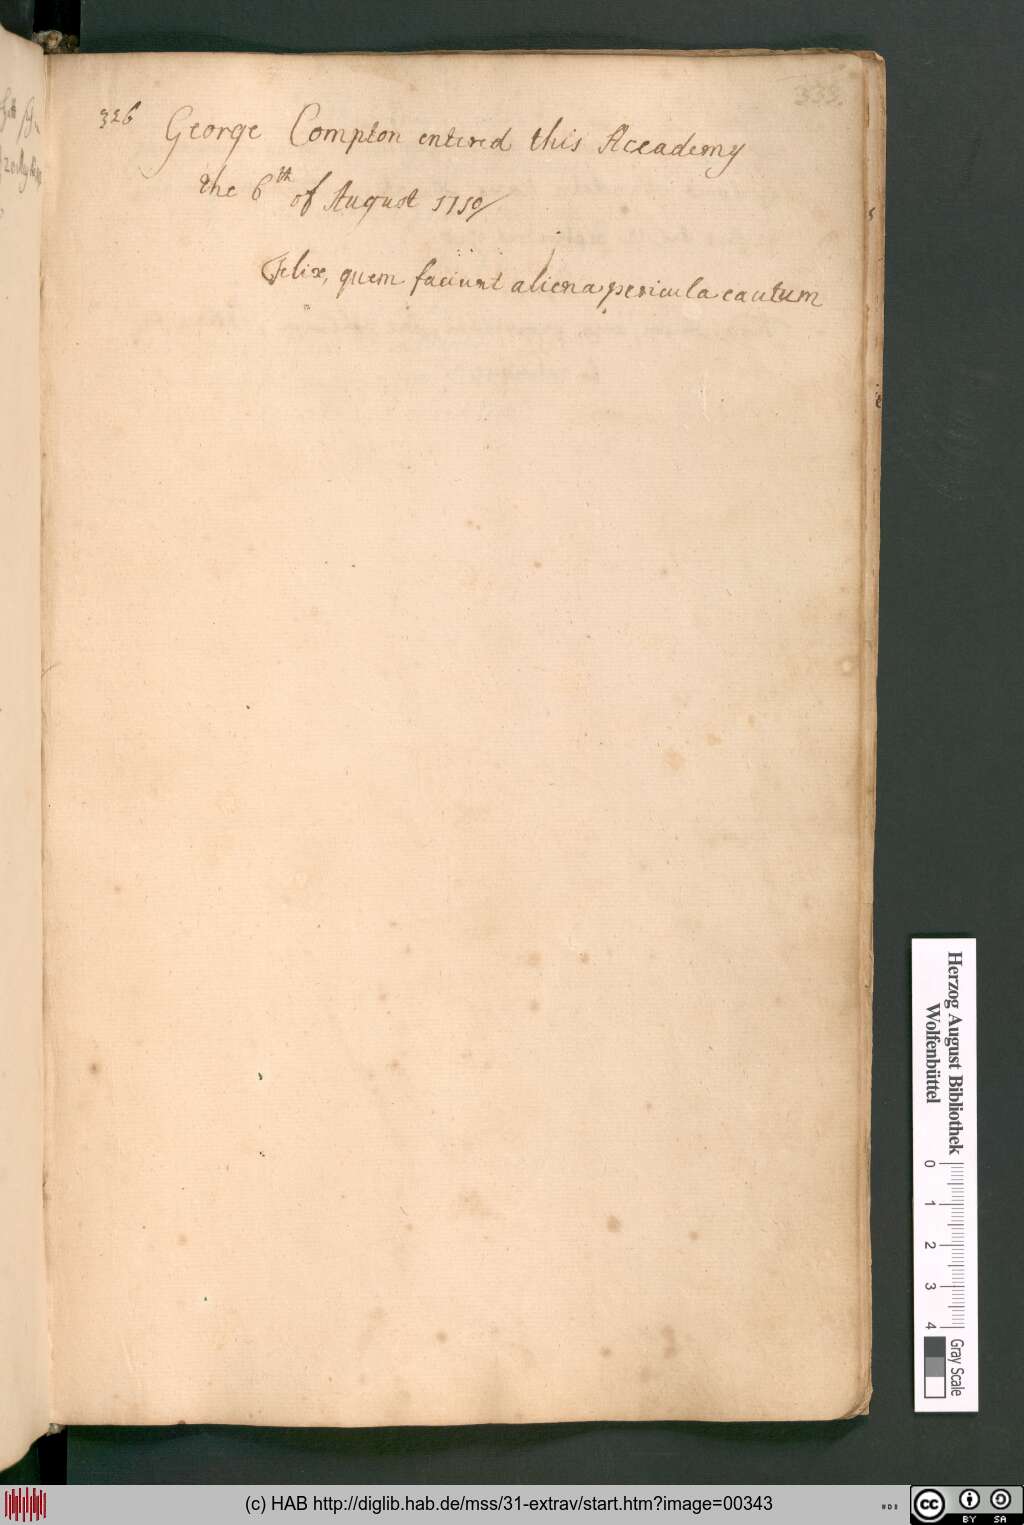 333.
326 George Compton entered this Accademy
the 6th of August 1710
Felix, quem faciunt aliena pericula cautum
Herzog August Bibliothek
Wolfenbüttel
0 1 2 3 4
Gray Scale
(c) HAB http://diglib.hab.de/mss/31-extrav/start.htm?image=00343
cc BY SA